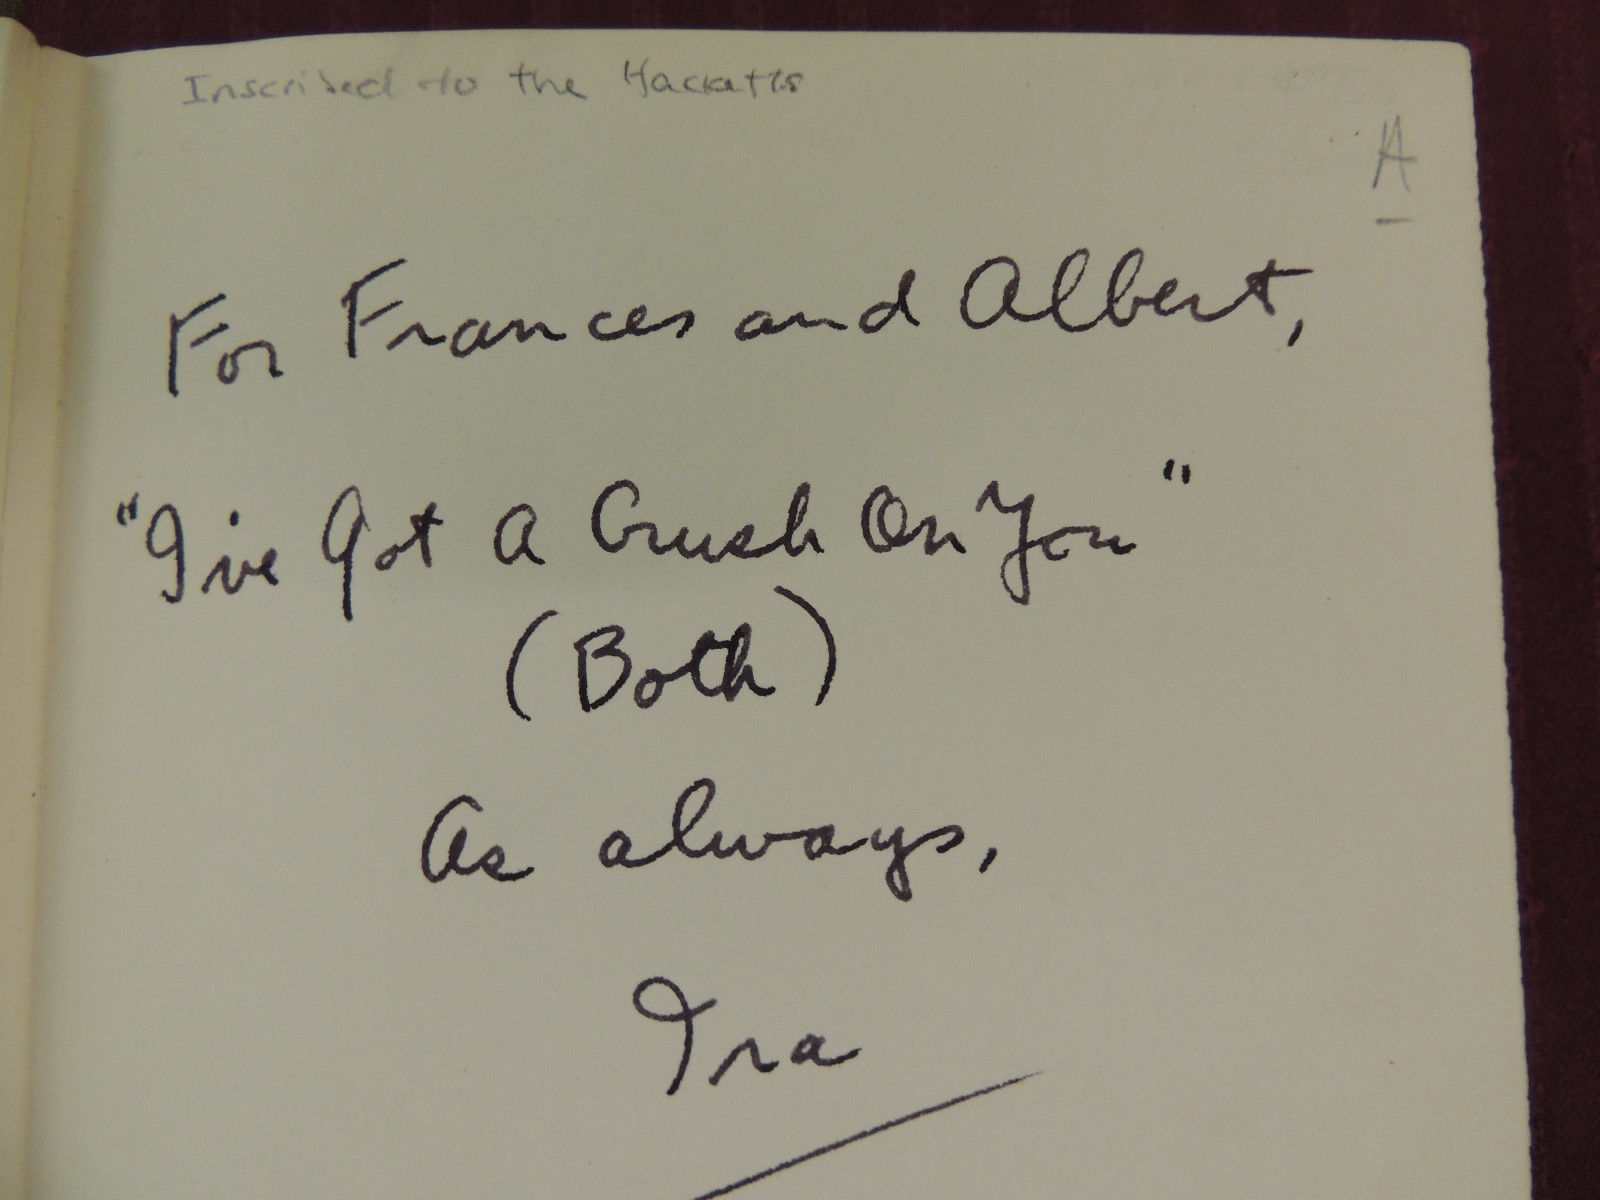 Inscribed to the Hacketts
A
For Frances and Albert,
"I've Got A Crush On You"
(Both)
As always,
Ira